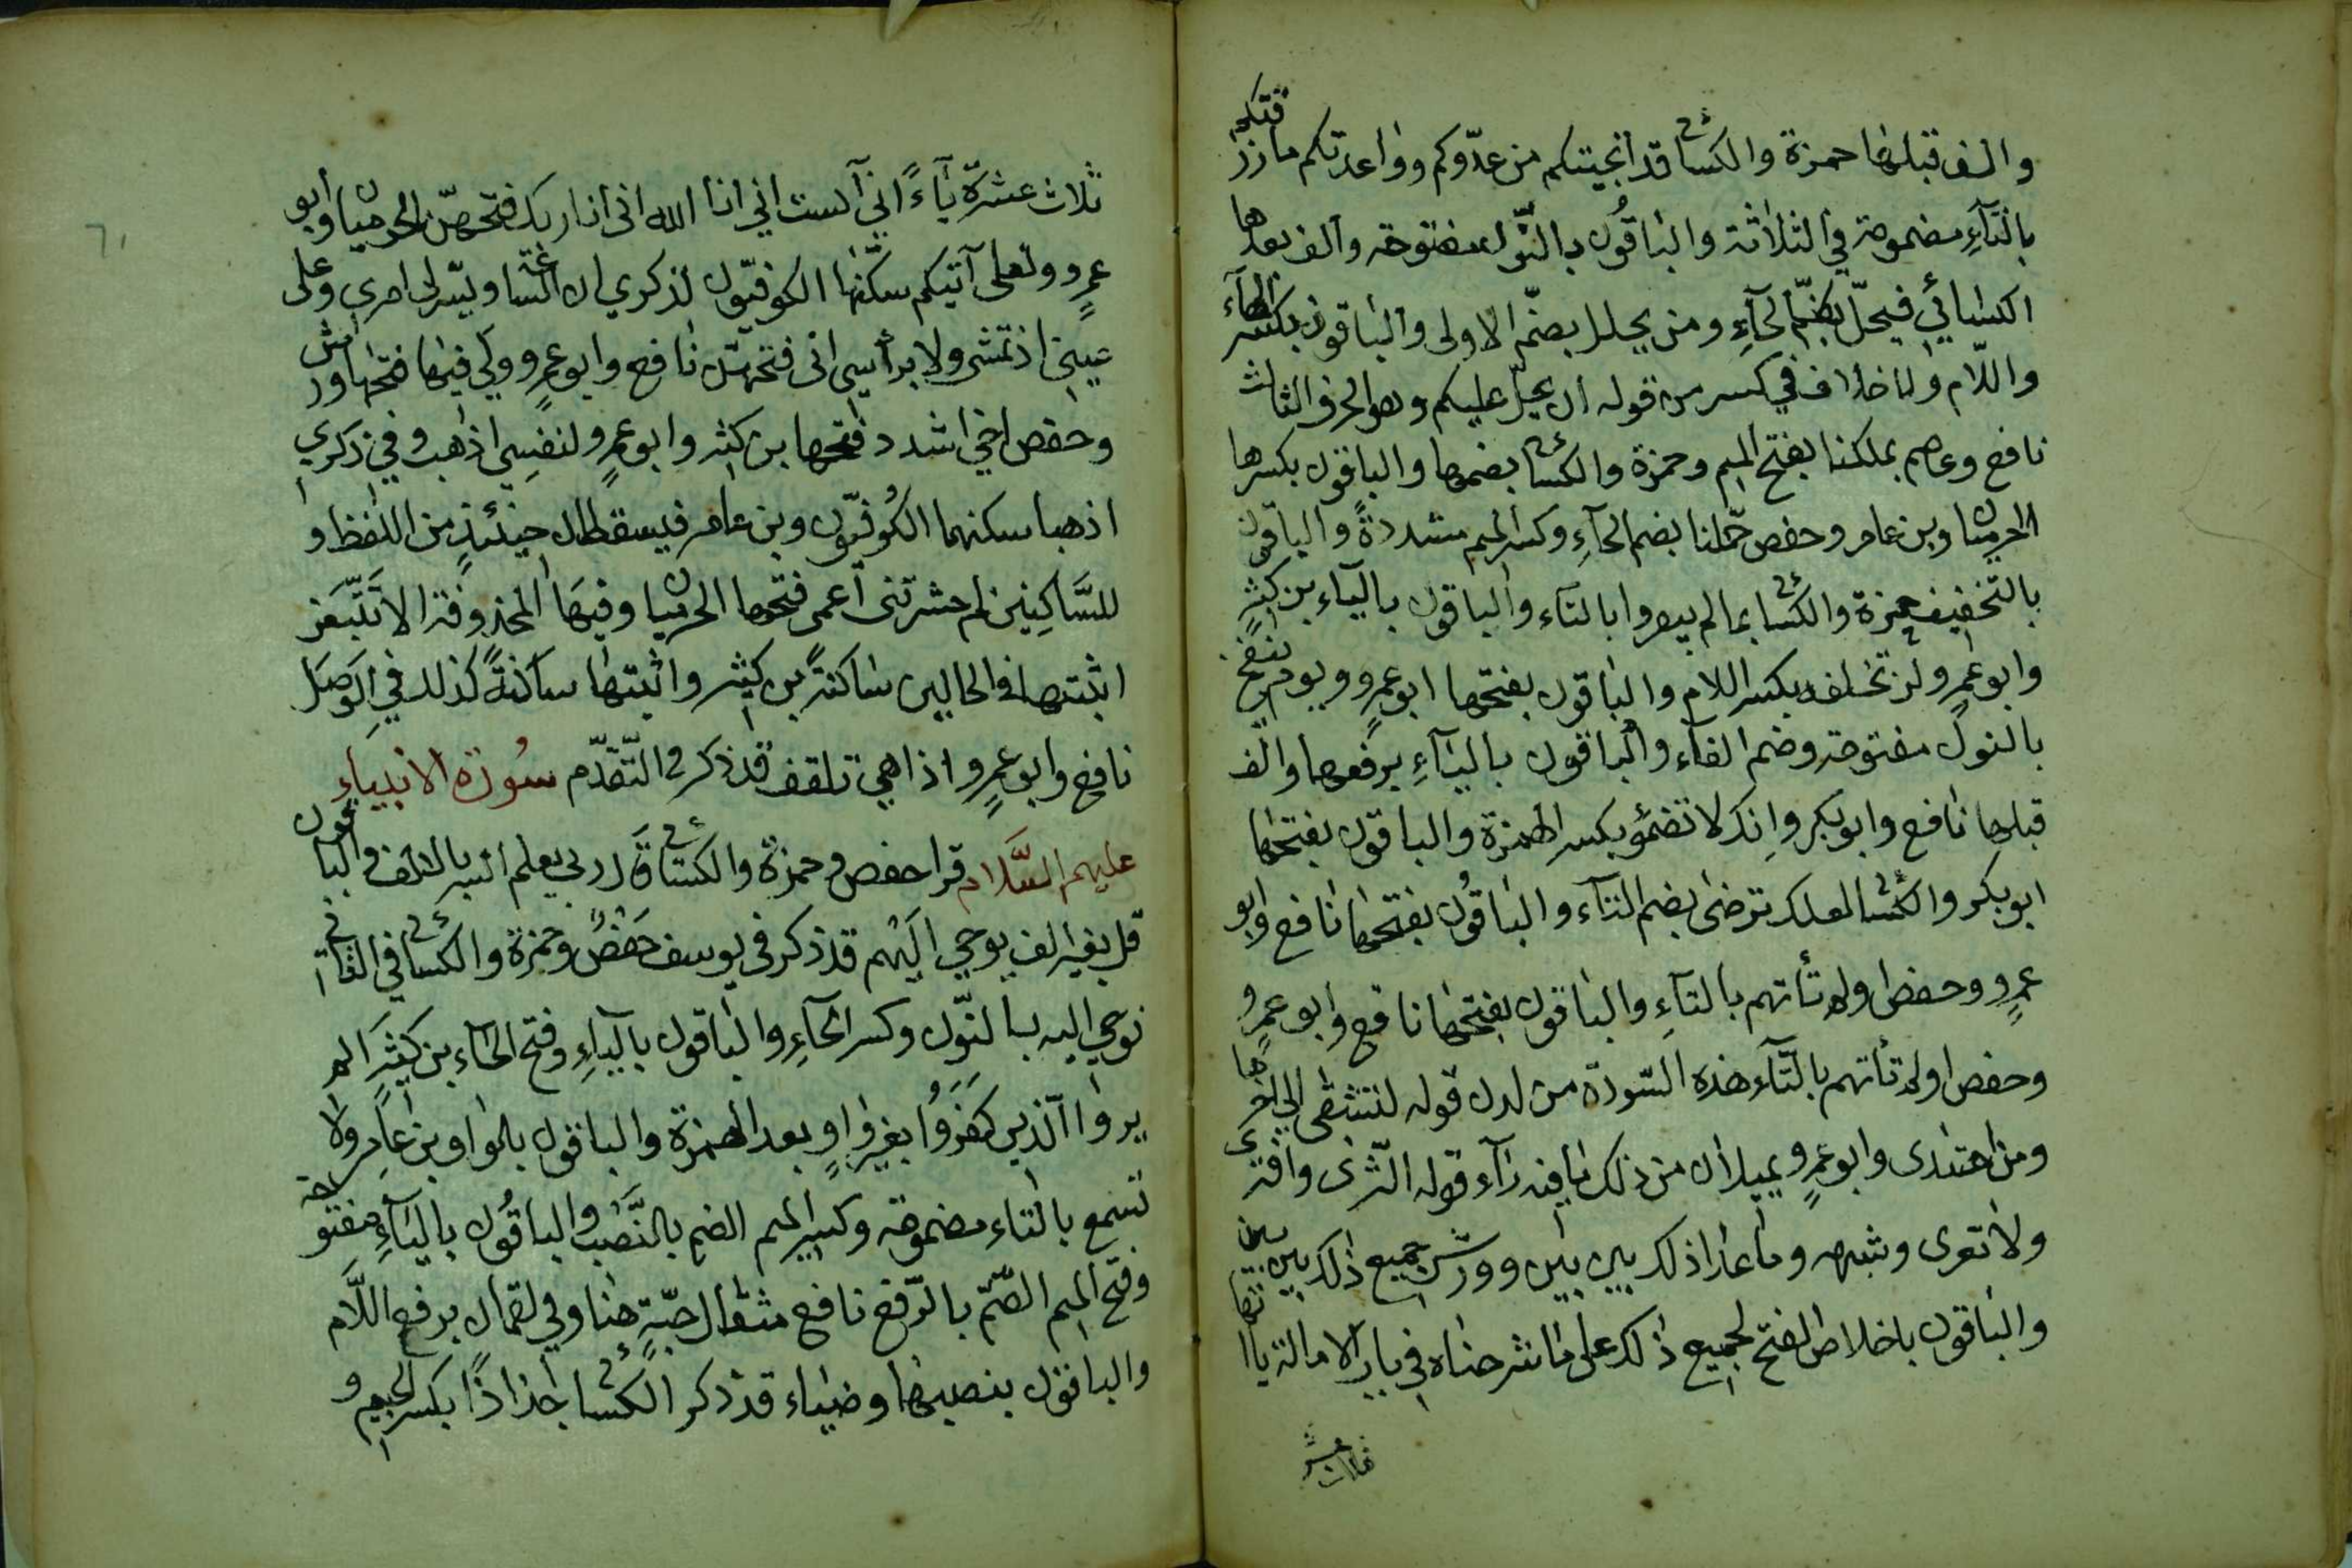 والف قبلها حمزة والكسائي قد انجيتكم من عدّوكم وواعدتكم ما رزقتكم
بالتآءِ مضمومة في الثلاثة والباقُون بالنّون مفتوحة والف بعدها
الكسائي فيحلّ بضمّ الحآءِ ومن يحلل بضمّ الاولى والباقون بكسر الحآء
واللّام ولا خلاف في كسر من قوله ان يحلّ عليكم وهو الحرف الثالث
نافع وعاصم بملكنا بفتح الميم وحمزة والكسائي بضمها والباقون بكسرها
الحرميان وبن عامر وحفص حمّلنا بضم الحآءِ وكسر الميم مشددةً والباقون
بالتخفيف حمزة والكسائي بما لم يبصروا بالتاء والباقون بالياء بن كثيرٍ
وابو عمرٍو لن تخلفه بكسر اللام والباقون بفتحها ابو عمرٍو ويوم ننفخ
بالنون مفتوحة وضم الفآء والباقون باليآءِ برفعها والف
قبلها نافع وابو بكر واِنك لا تضمؤ بكسر الهمزة والباقون بفتحها
ابو بكر والكسائي لعلك ترضى بضم التآء والباقُون بفتحها نافع وابو
عمرٍو وحفص اولم تأتهم بالتآءِ والباقون بفتحها نافع وابو عمرٍو
وحفص اولم تأتهم بالتآء هذه السّورة من لدن قوله لتشقى الى اخرها
ومن اهتدى وابو عمرٍو يميلان من ذلك ما فيه رآء قوله الثّرى وافترى
ولا تعرى وشبهه وما عدا ذلك بين بين وورش جميع ذلك بين بين
والباقون باخلاص الفتح لجميع ذلك على ما شرحناه في باب الامالة يااتها
ثلاث عشرة
ثلاث عشرة يآءً اني آنست اني انا الله اني انا ربك فتحهنّ الحرميان وابو
عمرٍو ولعلى آتيكم سكّنها الكوفيّون لذكري ان السّاعة ويسّر لى امري وعلى
عينى اذ تمشى ولا برأسي انى فتحهنّ نافع وابو عمرٍو ولي فيها فتحها ورش
وحفص اخي اشدد فتحها بن كثير وابو عمرٍو لنفسِي اذهب وفي ذكري
اذهبا سكنهما الكُوفيّون وبن عامر فيسقطان حينئذٍ من اللفظ و
للسَّاكِنين لم حشرتنى آعمى فتحها الحرميان وفيهَا المحذوفة الا تتّبعَن
اثبتها في الحالين ساكنةً بن كثير واثبتها ساكنةً كذلك في الوَصَل
نافع وابو عمرٍو واذا هي تلقف قد ذكر في التّقدّم سُورة الانبياءِ
عليهم السَّلام قرا حفص وحمزة والكسائي قَال ربي يعلم انسه بالالف والباقون
قل بغير الف يوحي اليَهُم قد ذكر فى يوسف حَفصٌ وحمزة والكسائي في الثاني
نوحي اليه بالنّون وكسر الحآءِ والباقون باليآءِ وفتح الحاء بن كثير الم
يروا الّذين كفَروُا بغير واوٍ بعد الهمزة والباقون بالواو بن عامرٍ ولا
تسمع بالتاء مضمومة وكسر الميم الضم بالنَّصب والباقُون باليآءِ مفتوحة
وفتح الميم الصّم بالرّفع نافع مثقال حبّةٍ هنا وفي لقمان برفع اللَّام
والباقون بنصبها وضياء قد ذكر الكسائي جذاذًا بكسر الجيم و